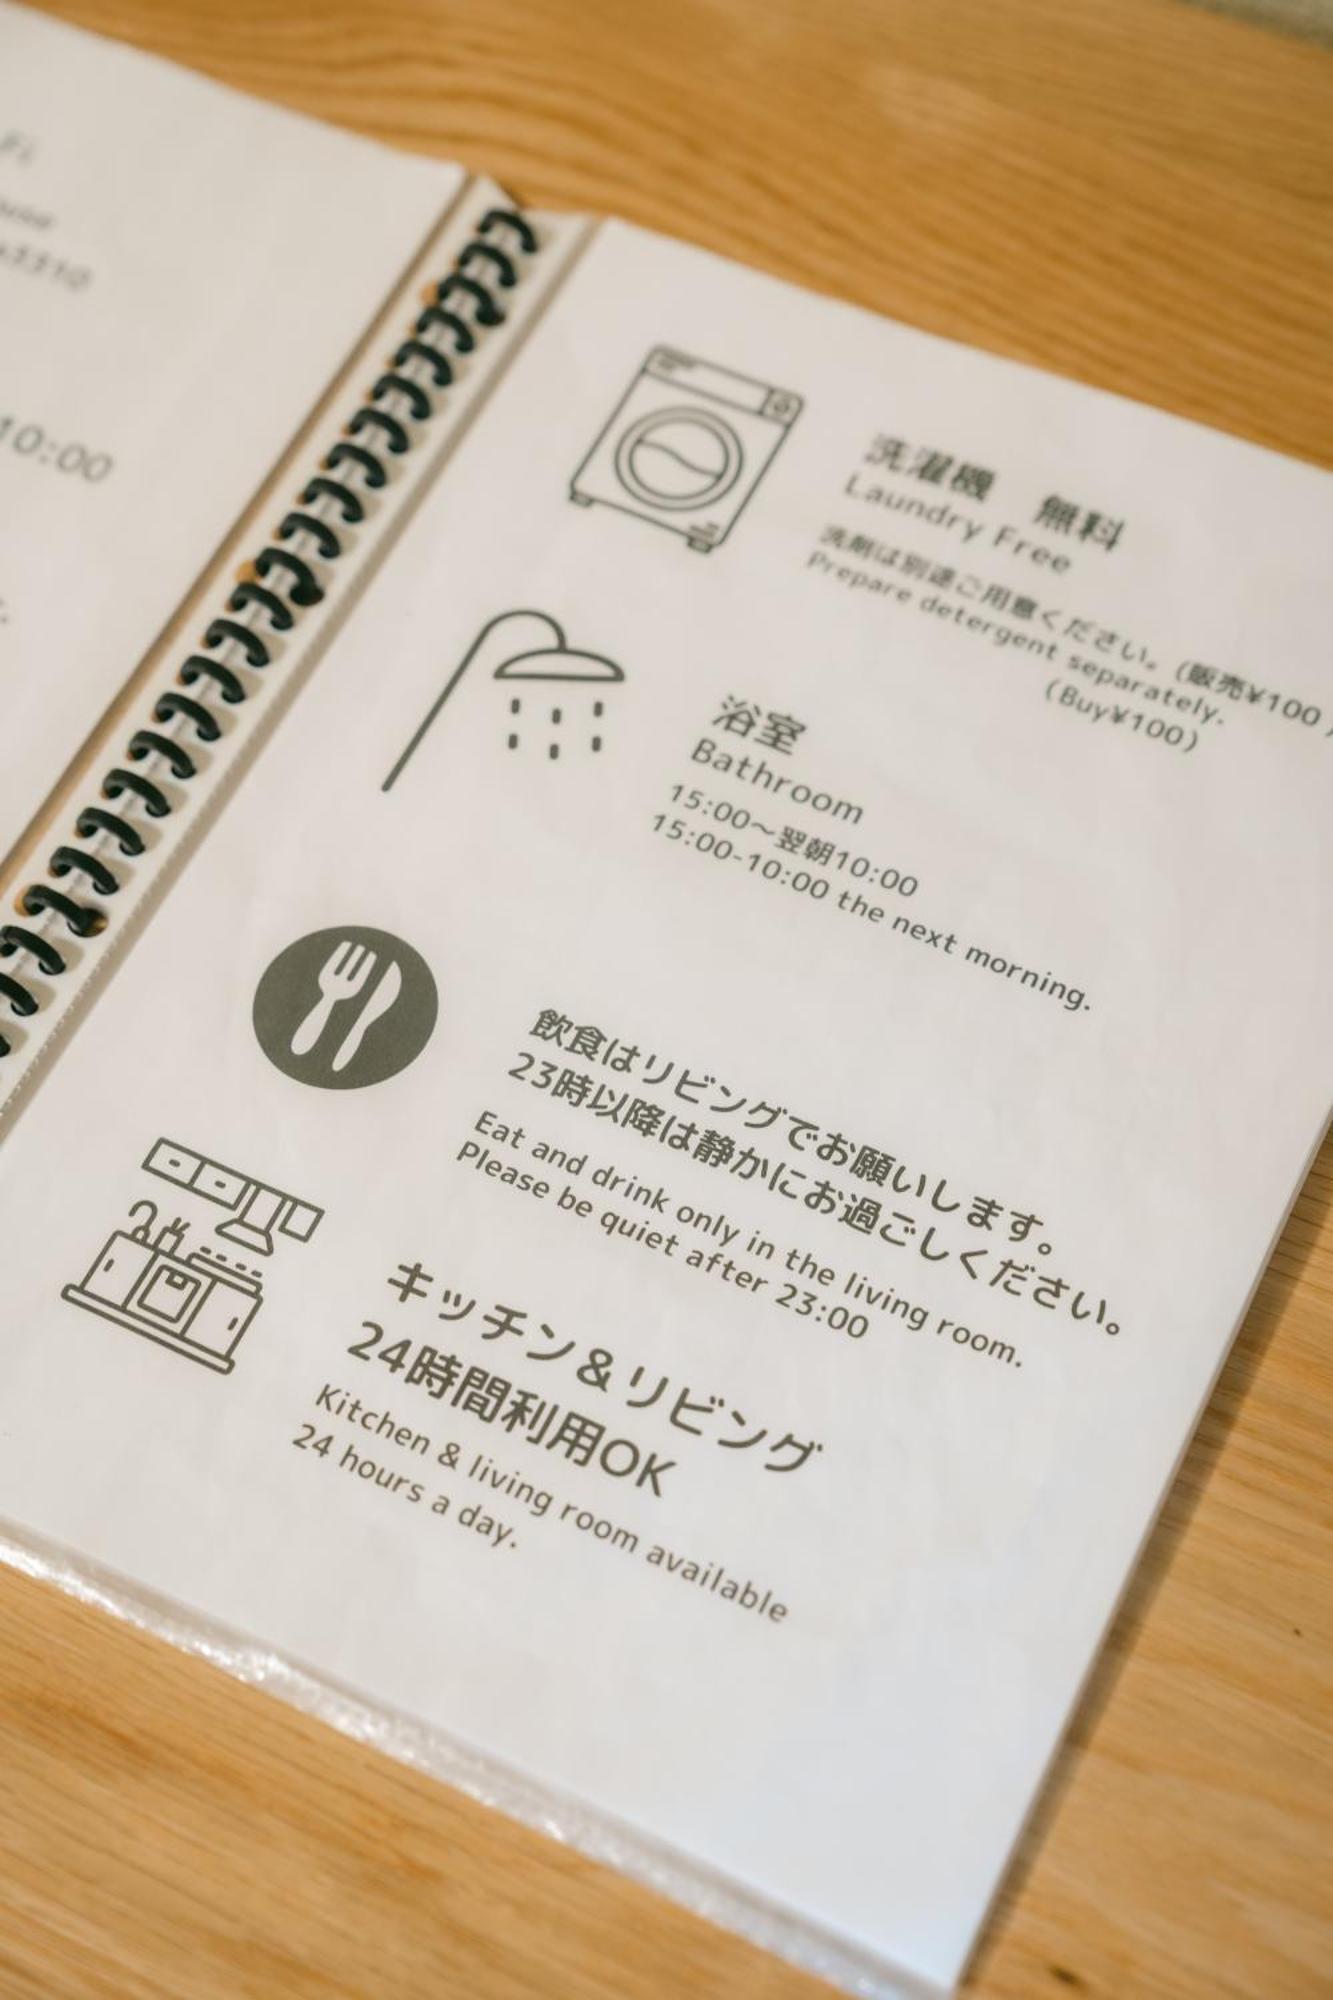 Fi
3310
10:00
洗濯機 無料
Laundry Free
洗剤は別途ご用意ください。(販売¥100)
Prepare detergent separately.
(Buy¥100)
浴室
Bathroom
15:00～翌朝10:00
15:00-10:00 the next morning.
飲食はリビングでお願いします。
23時以降は静かにお過ごしください。
Eat and drink only in the living room.
Please be quiet after 23:00
キッチン&リビング
24時間利用OK
Kitchen & living room available
24 hours a day.